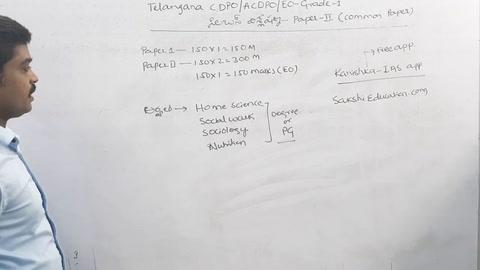 Telangana CDPO/ACDPO/EO-Grade-1
Paper-II (Common Paper)
Paper 1 – 150x1=150 M
Paper II – 150x2=300 M
150x1=150 marks (EO)
→ Free app
Karishka-IAS app
SakshiEducation.com
→ Home science
Social work
Sociology
Nutrition
Degree
or
PG